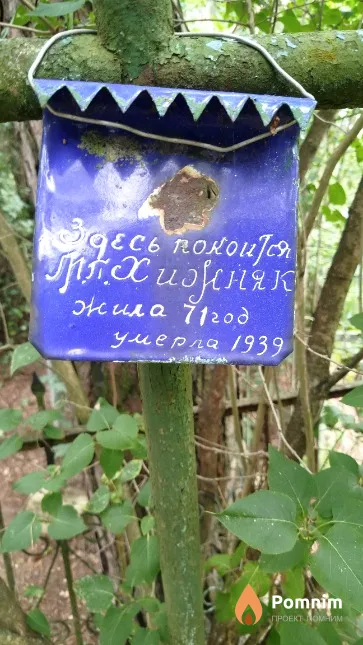 Здесь покоится
Тр. Хижняк
жила 71 год
умерла 1939
Pomnim
ПРОЕКТ ПОМНИМ